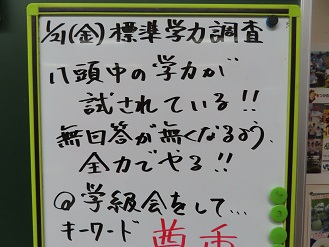 1/21(金)標準学力調査
八頭中の学力が
試されている!!
無回答が無くなるよう、
全力でやる!!
◎学級会をして…
キーワード 尊重